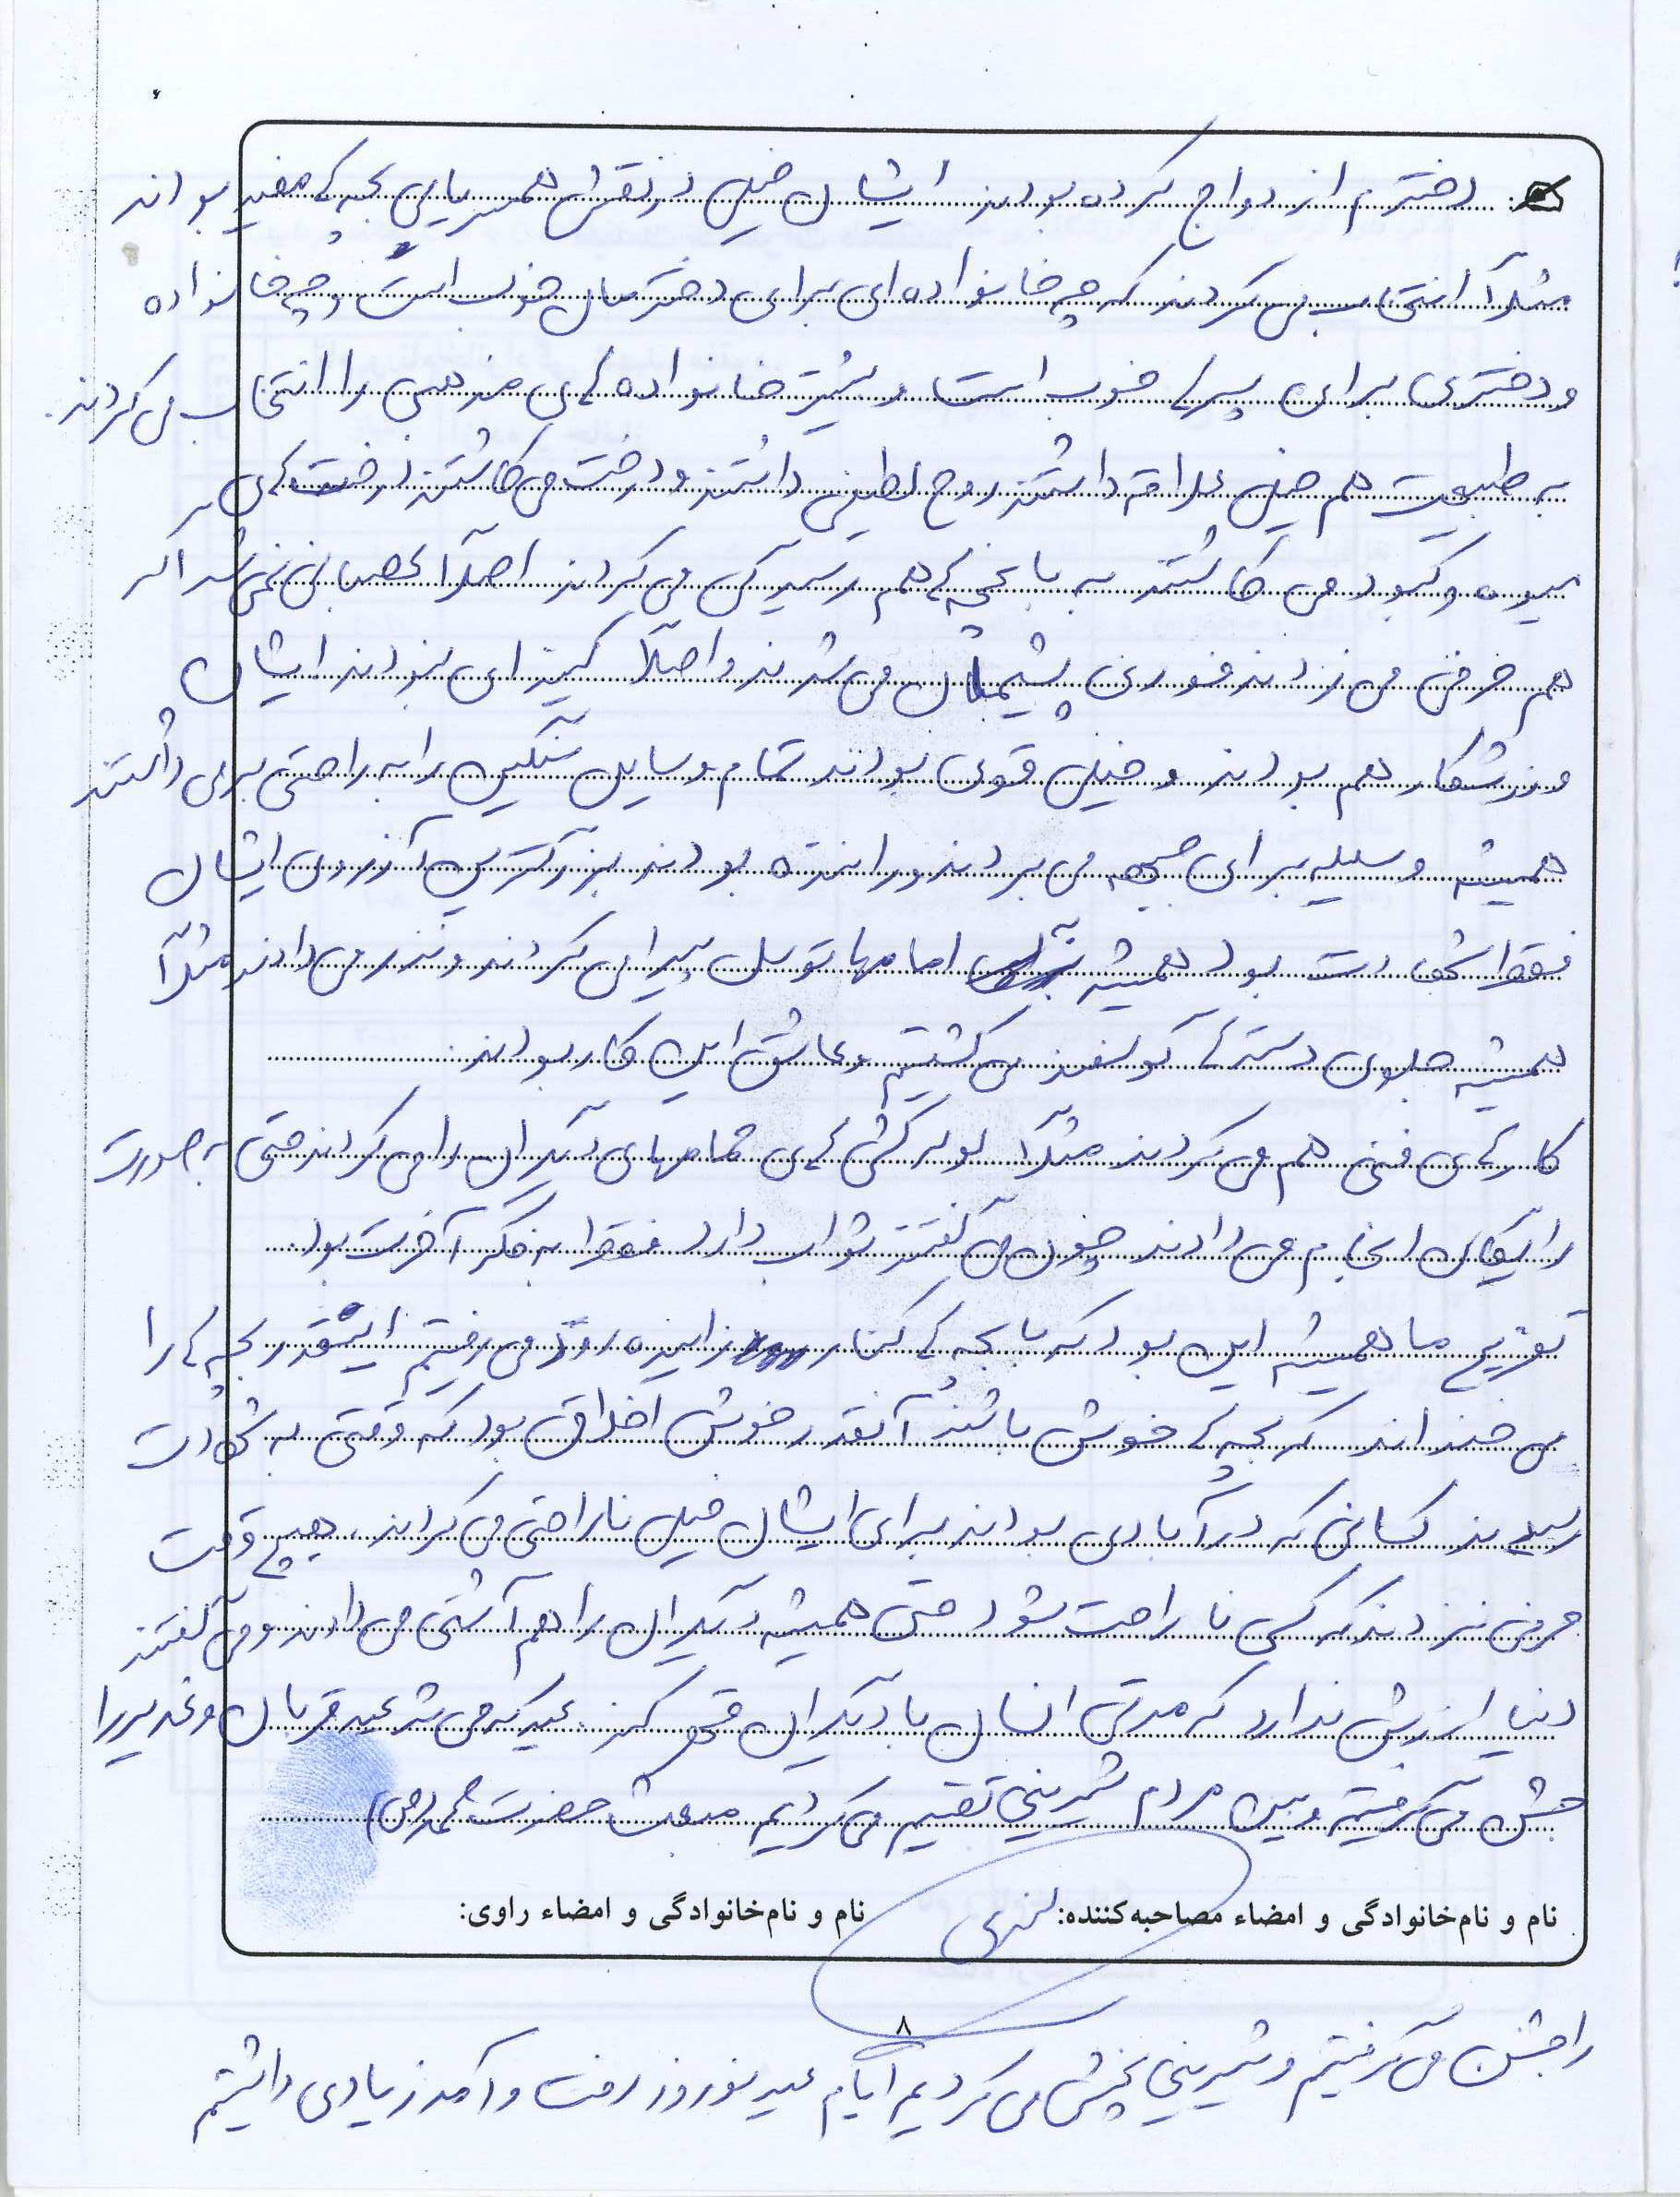 دخترم ازدواج کرده بودند ایشان خیلی در نقش همسریابی بچه‌ها مفید بودند
مثلاً انتخاب می کردند که چه خانواده ای برای دخترمان خوب است و چه خانواده
و دختری برای پسرها خوب است و بیشتر خانواده های مذهبی را انتخاب می کردند.
به طبیعت هم خیلی علاقه داشتند روح لطیفی داشتند و درخت می کاشتند درخت های
میوه و کبود می کاشتند به باغچه ها هم رسیدگی می کردند اصلاً عصبانی نمی شد اگر
هم حرفی می زدند فوری پشیمان می شدند و اصلاً کینه ای نبودند ایشان
ورزشکار هم بودند و خیلی قوی بودند تمام وسایل سنگین را به راحتی برمی داشتند
همیشه وسیله برای جبهه می بردند و راننده بودند بزرگترین آرزوی ایشان
فقط شهادت بود همیشه به امامها توسل پیدا می کردند و نذر می دادند مثلاً
همیشه جلوی دسته ها گوسفند می کشتیم و عاشق این کار بودند.
کارهای فنی هم می کردند مثلاً لوله کشی های حمامهای دیگران را می کردند حتی به صورت
رایگان انجام می دادند چون می گفتند ثواب دارد فقط به فکر آخرت بود.
تفریح ما همیشه این بود که با بچه ها کنار زاینده رود می رفتیم اینقدر بچه ها را
می خنداند که بچه ها خوش باشند آنقدر خوش اخلاق بود که وقتی به شهادت
رسیدند کسانی که در آبادی بودند برای ایشان خیلی ناراحتی می کردند. هیچ وقت
حرفی نزدند که کسی ناراحت شود حتی همیشه دیگران را هم آشتی می دادند و می گفتند
دنیا ارزش ندارد که مدتی انسان با دیگران قهر کند. عید که می شد عید قربان و غدیر را
جشن می گرفتیم و بین مردم شیرینی تقسیم می کردیم مبعث حضرت محمد (ص)
نام و نام‌خانوادگی و امضاء مصاحبه‌کننده: نام و نام‌خانوادگی و امضاء راوی:
۸
را جشن می گرفتیم و شیرینی پخش می کردیم ایام عید نوروز رفت و آمد زیادی داشتیم